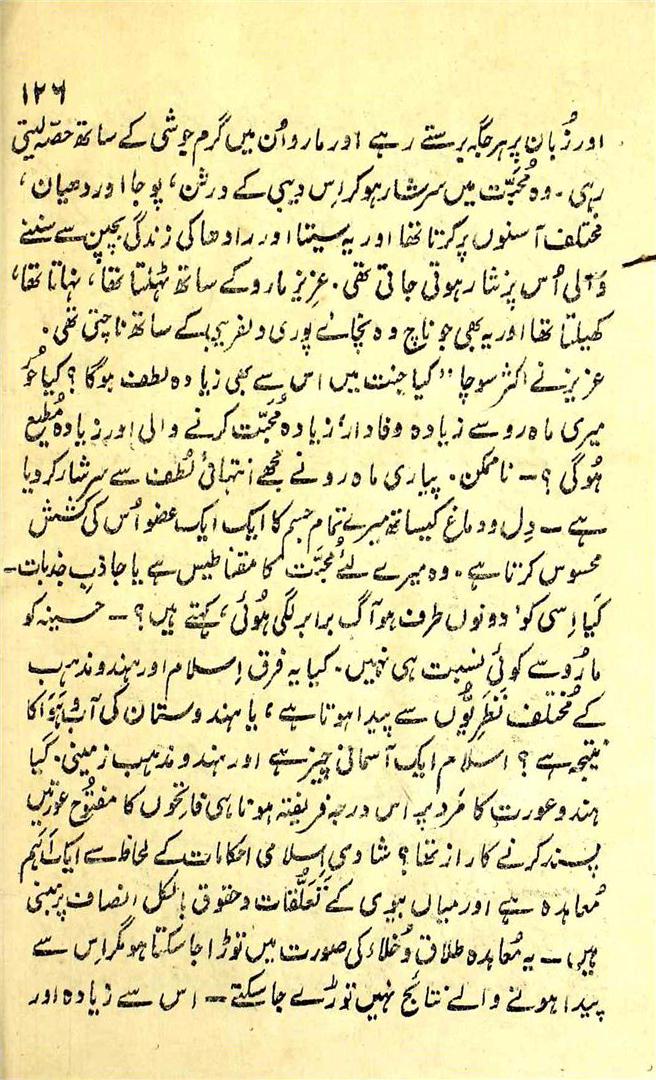 ۱۲۶
اور زُبان پر ہر جگہ برستے رہے اور مارو اُن میں گرم جوشی کے ساتھ حصّہ لیتی
رہی۔ وہ مُحبّت میں سرشار ہو کر اِس دیبی کے درشن، پوجا اور دھیان،
مختلف آسنوں پر کرتا تھا اور یہ سیتا اور رادھا کی زندگی بچپن سے سننے
والی اُس پر نثار ہوتی جاتی تھی۔ عزیز مارو کے ساتھ ٹہلتا تھا، نہاتا تھا،
کھیلتا تھا اور یہ بھی جو ناچ وہ نچائے پوری دلفریبی کے ساتھ ناچتی تھی۔
عزیز نے اکثر سوچا "کیا جنت میں اس سے بھی زیادہ لطف ہوگا؟ کیا حُور
میری ماہ رو سے زیادہ وفادار، زیادہ مُحبّت کرنے والی اور زیادہ مُطیع
ہوگی؟ — ناممکن۔ پیاری ماہ رو نے مجھے انتہائی لُطف سے سرشار کر دیا
ہے — دِل و دماغ کیساتھ میرے تمام جسم کا ایک ایک عضو اُس کی کشش
محسوس کرتا ہے۔ وہ میرے لئے مُحبّت کا مقناطیس ہے یا جاذبِ جذبات —
کیا اِسی کو 'دونوں طرف ہو آگ برابر لگی ہُوئی' کہتے ہیں؟ — حسینہ کو
مارُو سے کوئی نسبت ہی نہیں۔ کیا یہ فرق اِسلام اور ہندو مذہب
کے مُختلف نَظریُّوں سے پیدا ہوتا ہے، یا ہندوستان کی آب و ہَوَا کا
نتیجہ ہے؟ اسلام ایک آسمانی چیز ہے اور ہندو مذہب زمینی۔ کیا
ہندو عورت کا مَرد پر اس درجہ فریفتہ ہونا ہی فاتحوں کا مفتُوح عورتیں
پسند کرنے کا راز تھا؟ شادی اِسلامی احکامات کے لحاظ سے ایک اَہَم
مُعاہدہ ہے اور میاں بیوی کے تَعلُّقات و حقوق بالکل انصاف پر مَبنی
ہیں — یہ مُعاہدہ طلاق و خُلاء کی صورت میں توڑا جا سکتا ہو مگر اِس سے
پیدا ہونے والے نتائج نہیں توڑے جا سکتے — اس سے زیادہ اور